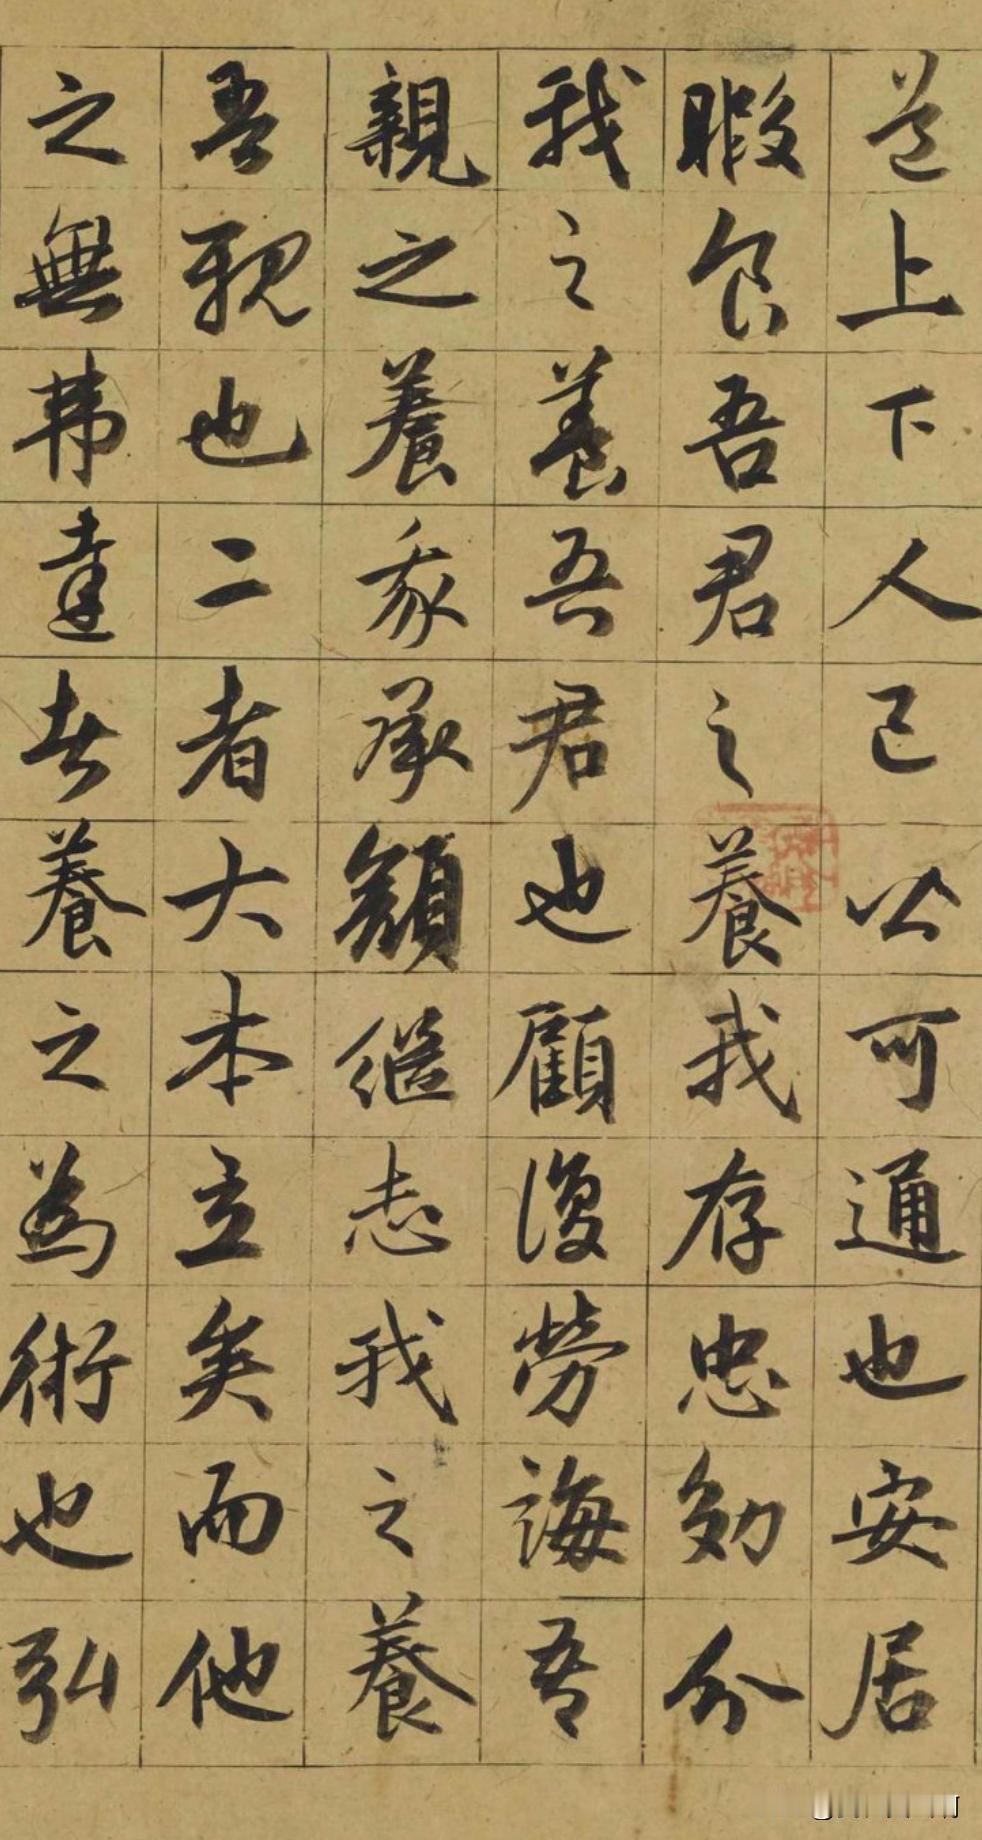 道上下人己以可通也安居
暇食吾君之養我存忠効分
我之養吾君也顧復勞誨吾
親之養我承顏繼志我之養
吾親也二者大本立矣而他
之無弗達者養之為術也弘